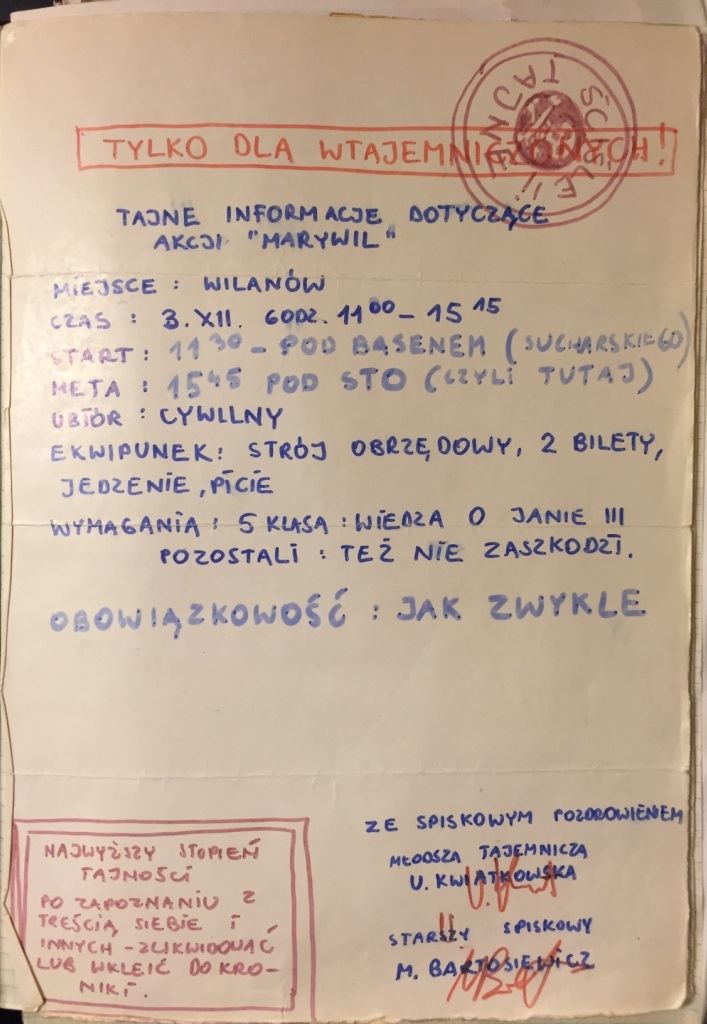 ŚCIŚLE TAJNE!!!
TYLKO DLA WTAJEMNICZONYCH!
TAJNE INFORMACJE DOTYCZĄCE
AKCJI "MARYWIL"
MIEJSCE : WILANÓW
CZAS : 3.XII. GODZ. 11⁰⁰ - 15¹⁵
START : 11³⁰ - POD BASENEM (SUCHARSKIEGO)
META : 15⁴⁵ POD STO (CZYLI TUTAJ)
UBIÓR : CYWILNY
EKWIPUNEK: STRÓJ OBRZĘDOWY, 2 BILETY,
JEDZENIE, PICIE
WYMAGANIA : 5 KLASA : WIEDZA O JANIE III
POZOSTALI : TEŻ NIE ZASZKODZI.
OBOWIĄZKOWOŚĆ : JAK ZWYKLE
ZE SPISKOWYM POZDROWIENIEM
MŁODSZA TAJEMNICZA
U. KWIATKOWSKA
STARSZY SPISKOWY
M. BARTOSIEWICZ
NAJWYŻSZY STOPIEŃ
TAJNOŚCI
PO ZAPOZNANIU Z
TREŚCIĄ SIEBIE I
INNYCH - ZLIKWIDOWAĆ
LUB WKLEIĆ DO KRO-
NIKI.